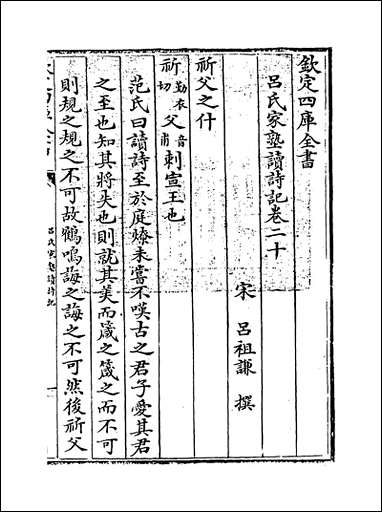 欽定四庫全書
呂氏家塾讀詩記卷二十
宋 呂祖謙 撰
祈父之什
祈勤衣切父音甫刺宣王也
范氏曰讀詩至於庭燎未嘗不嘆古之君子愛其君
之至也知其將失也則就其美而箴之箴之而不可
則規之規之不可故鶴鳴誨之誨之不可然後祈父
呂氏家塾讀詩記